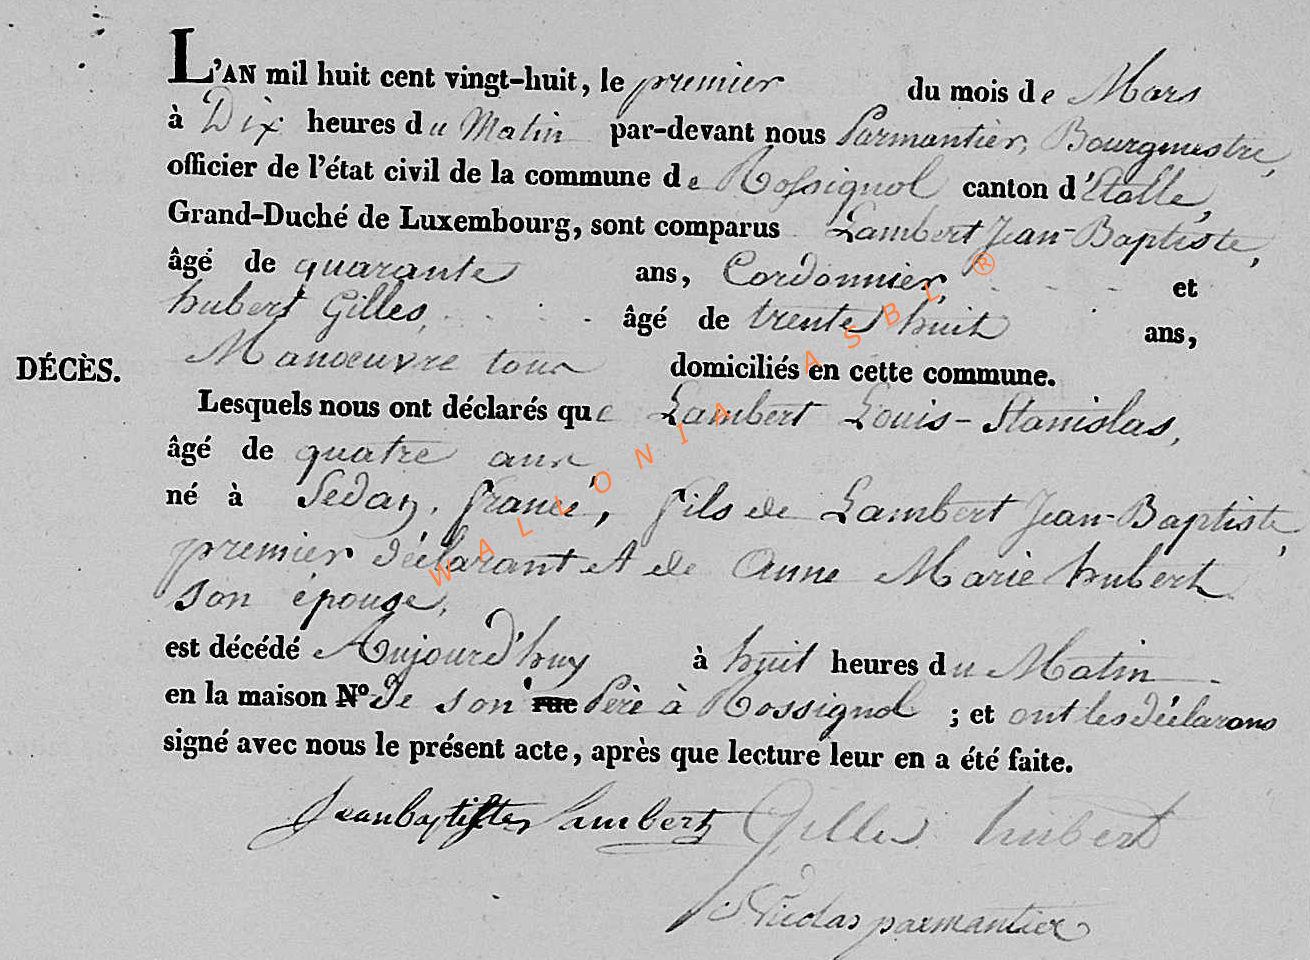 L'AN mil huit cent vingt-huit, le premier du mois de Mars
à Dix heures du Matin par-devant nous Parmantier, Bourgmestre,
officier de l'état civil de la commune de Rossignol canton d'Etalle,
Grand-Duché de Luxembourg, sont comparus Lambert Jean-Baptiste,
âgé de quarante ans, Cordonnier, et
hubert Gilles, âgé de trente huit ans,
Manoeuvre tous domiciliés en cette commune.
DÉCÈS.
Lesquels nous ont déclarés que Lambert Louis-Stanislas,
âgé de quatre ans
né à Sedan, france, fils de Lambert Jean-Baptiste,
premier déclarant et de Anne Marie hubert
son épouse,
est décédé Aujourd'huy à huit heures du Matin
en la maison N° de son rue Père à Rossignol ; et ont les déclarans
signé avec nous le présent acte, après que lecture leur en a été faite.
Jean baptiste Lambert Gilles hubert
Nicolas parmantier
WALLONIA ASBL ®